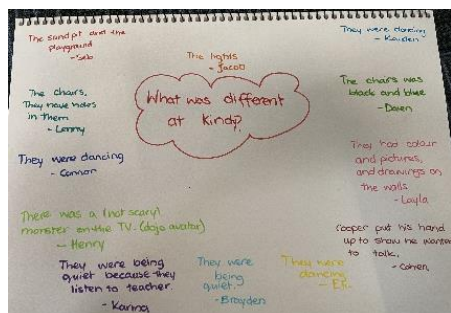 The sandpit and the
playground
- Seb
The lights
- Jacob
They were dancing
- Kaiden
What was different
at Kindy?
The chairs.
They have holes
in them
- Lenny
The chairs was
black and blue
- Daven
They were dancing
- Connor
They had colour
and pictures,
and drawings on
the walls
- Layla
There was a (not scary)
monster on the TV. (dojo avatar)
- Henry
Cooper put his hand
up to show he wanted
to talk.
- Cohen
They were being
quiet because they
listen to teacher.
- Karina
They were
being
quiet.
- Brayden
They were
dancing